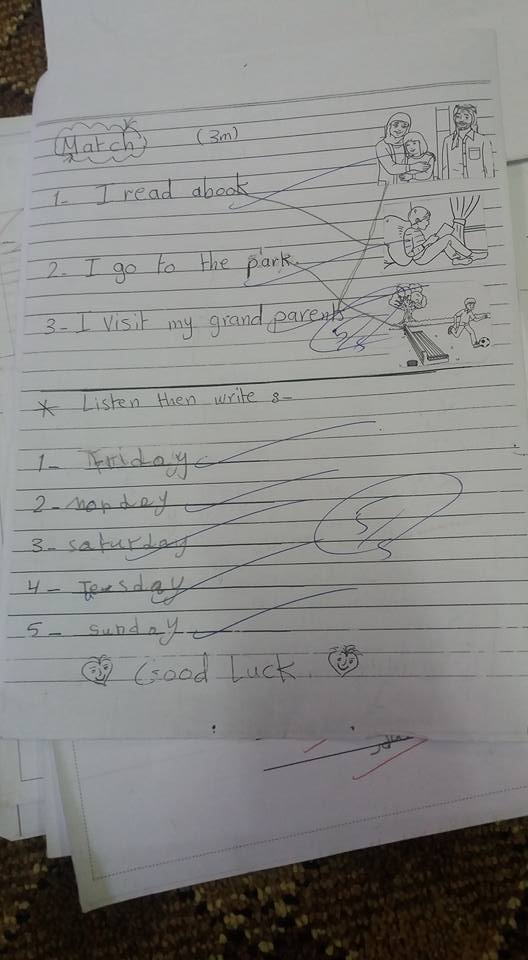 Match (3m)
1- I read abook
2- I go to the park.
3- I visit my grand parents
5/5
* Listen then write :-
1- Friday
2- monday
3- saturday
4- Teusday
5- sunday
5/5
Good Luck.